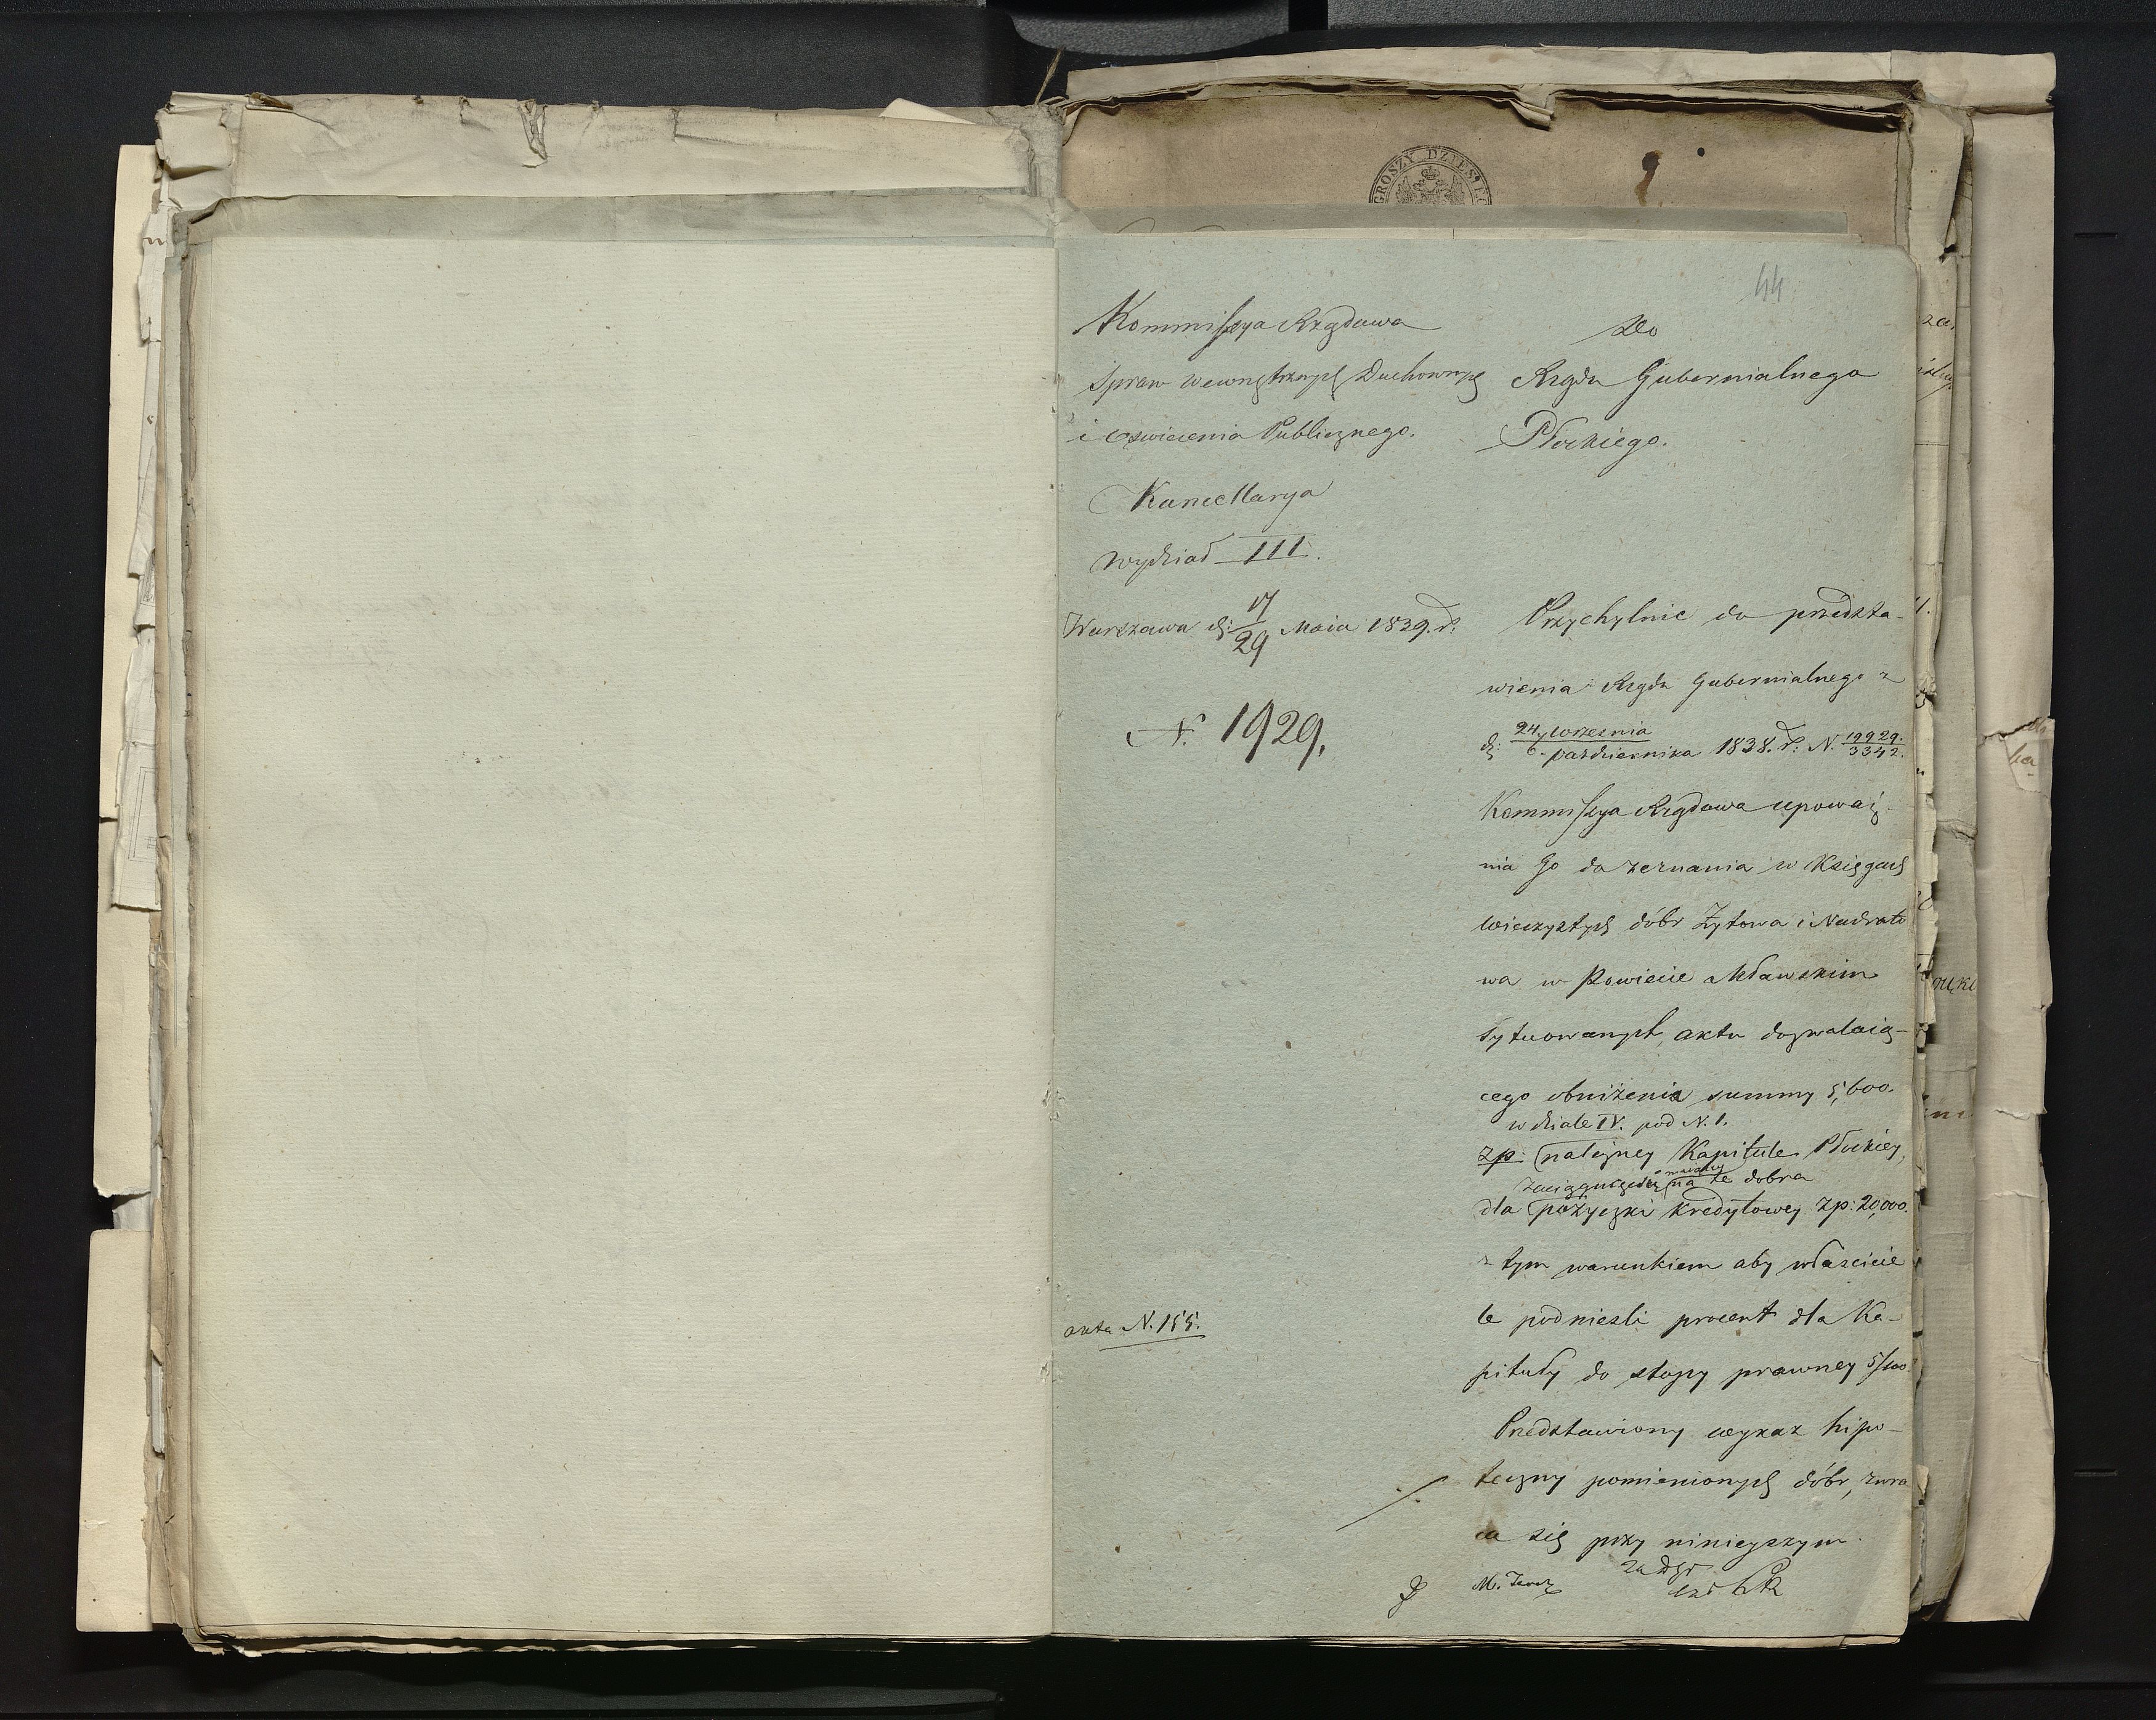 GROSZY DZIESIĘĆ
44
Kommissya Rządowa
Spraw Wewnętrznych Duchownych
i Oświecenia Publicznego.
Kancellarya
Wydział III.
Warszawa d: 17/29 Maja 1839. r.
N. 1929.
akta N. 155.
Do
Rządu Gubernialnego
Płockiego.
Przychylnie do przedsta-
wienia Rządu Gubernialnego z
d: 24 Września / 6 Października 1838. r: N. 19929./3342.
Kommissya Rządowa upoważ-
nia Go do zeznania w Księgach
wieczystych dóbr Żytowa i Nadrato
wa w Powiecie Mławskim
sytuowanych, aktu dozwalaią-
cego obniżenia summy 5,600.
w dziale IV. pod N. 1.
zp: należney Kapitule Płockiey,
na te dobra
dla pożyczki kredytowey zp: 20,000.
z tym warunkiem aby właścicie
le podnieśli procent dla Ka-
pituły do stopy prawney 5/100
Przedstawiony wykaz hipo-
teczny pomienionych dóbr, zwra
ca się przy ninieyszym.